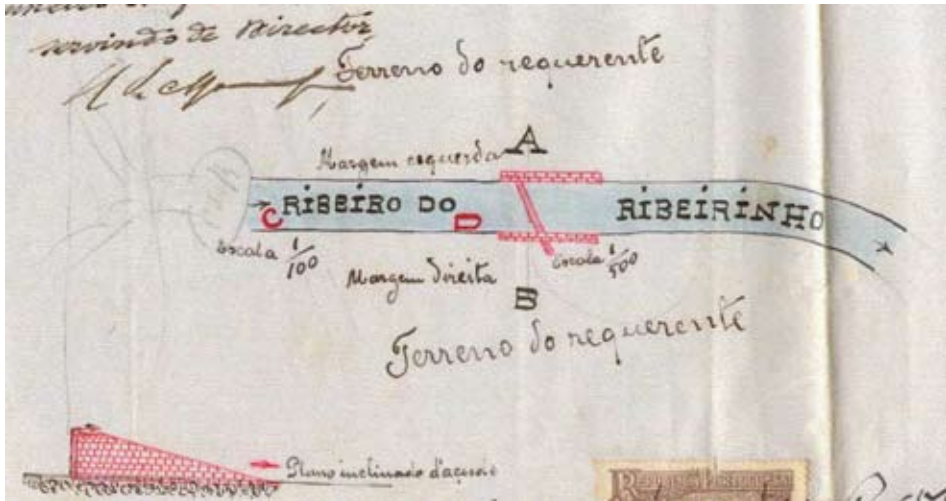 servindo de Director
Terreno do requerente
A
Margem esquerda
RIBEIRO DO RIBEIRINHO
C D
Escala 1/100
Escala 1/500
Margem direita
B
Terreno do requerente
Plano inclinado d'acesso
REPUBLICA PORTUGUESA